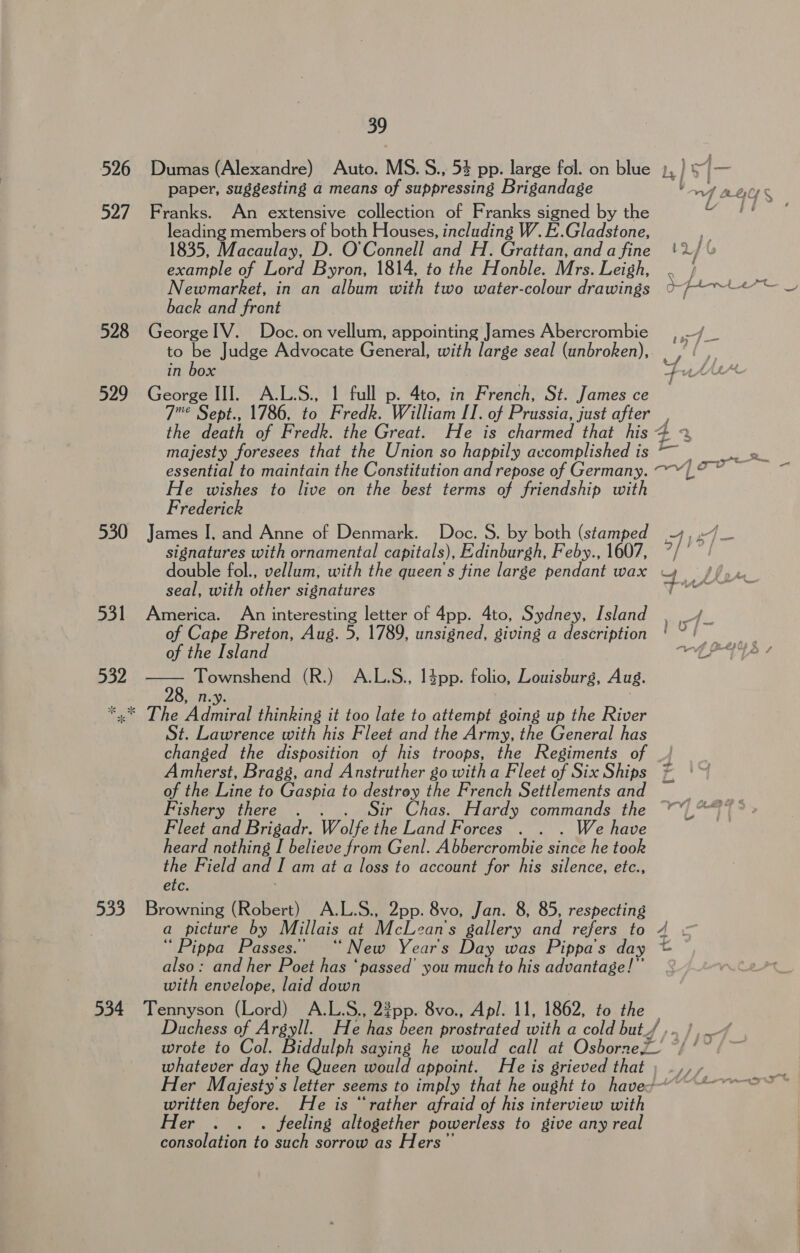 39
526 Dumas (Alexandre) Auto. MS. S., 5¾ pp. large fol. on blue
paper, suggesting a means of suppressing Brigandage
527 Franks. An extensive collection of Franks signed by the
leading members of both Houses, including W. E. Gladstone,
1835, Macaulay, D. O'Connell and H. Grattan, and a fine
example of Lord Byron, 1814, to the Honble. Mrs. Leigh,
Newmarket, in an album with two water-colour drawings
back and front
528 George IV. Doc. on vellum, appointing James Abercrombie
to be Judge Advocate General, with large seal (unbroken),
in box
529 George III. A.L.S., 1 full p. 4to, in French, St. James ce
7me Sept., 1786, to Fredk. William II. of Prussia, just after
the death of Fredk. the Great. He is charmed that his
majesty foresees that the Union so happily accomplished is
essential to maintain the Constitution and repose of Germany.
He wishes to live on the best terms of friendship with
Frederick
530 James I, and Anne of Denmark. Doc. S. by both (stamped
signatures with ornamental capitals), Edinburgh, Feby., 1607,
double fol., vellum, with the queen's fine large pendant wax
seal, with other signatures
531 America. An interesting letter of 4pp. 4to, Sydney, Island
of Cape Breton, Aug. 5, 1789, unsigned, giving a description
of the Island
532 —— Townshend (R.) A.L.S., 1¼pp. folio, Louisburg, Aug.
28, n.y.
*** The Admiral thinking it too late to attempt going up the River
St. Lawrence with his Fleet and the Army, the General has
changed the disposition of his troops, the Regiments of
Amherst, Bragg, and Anstruther go with a Fleet of Six Ships
of the Line to Gaspia to destroy the French Settlements and
Fishery there . . . Sir Chas. Hardy commands the
Fleet and Brigadr. Wolfe the Land Forces . . . We have
heard nothing I believe from Genl. Abbercrombie since he took
the Field and I am at a loss to account for his silence, etc.,
etc.
533 Browning (Robert) A.L.S., 2pp. 8vo, Jan. 8, 85, respecting
a picture by Millais at McLean's gallery and refers to
"Pippa Passes." "New Year's Day was Pippa's day
also: and her Poet has 'passed' you much to his advantage!"
with envelope, laid down
534 Tennyson (Lord) A.L.S., 2¾pp. 8vo., Apl. 11, 1862, to the
Duchess of Argyll. He has been prostrated with a cold but
wrote to Col. Biddulph saying he would call at Osborne
whatever day the Queen would appoint. He is grieved that
Her Majesty's letter seems to imply that he ought to have
written before. He is "rather afraid of his interview with
Her . . . feeling altogether powerless to give any real
consolation to such sorrow as Hers"